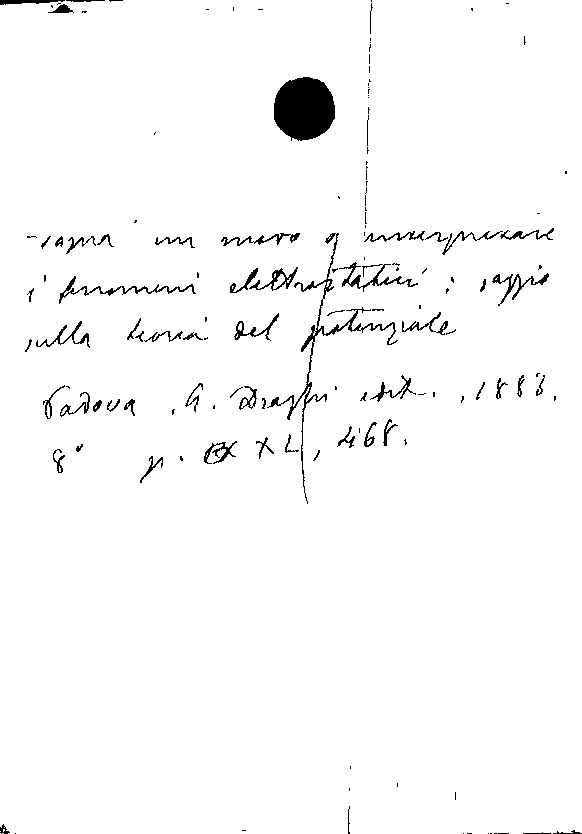 sopra un modo d' interpretare
i fenomeni elettrostatici : saggio
sulla teoria del potenziale
Padova , A. Draghi edit. , 1883.
8° p. XL, 468.